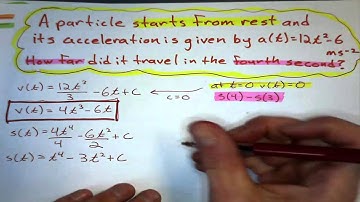 A particle starts from rest and
its acceleration is given by a(t)=12t²-6
ms⁻²
How far did it travel in the fourth second?
v(t)=12t³/3 -6t+C ← C=0
at t=0 v(t)=0
v(t)=4t³-6t
s(4)-s(3)
s(t)=4t⁴/4 -6t²/2 +C
s(t)=t⁴-3t²+C